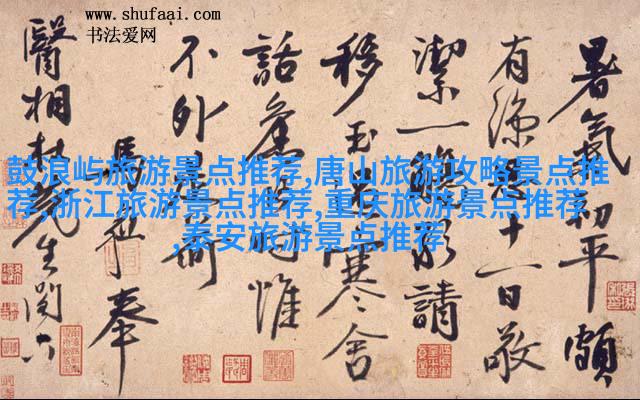 www.shufaai.com
书法爱网
鼓浪屿旅游景点推荐,唐山旅游攻略景点推
荐,浙江旅游景点推荐,重庆旅游景点推荐
,泰安旅游景点推荐
暑氣初平頗
有涼意十一日敬
潔一觴 請
移玉 寒舍
話舊 惟
不外 荷
馬 奉
醫相杜 先生閣下